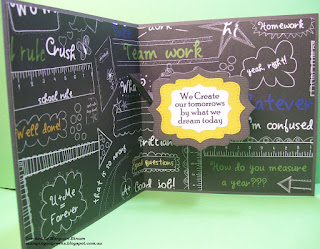 rule
Crush
school rule
Well done!
U+Me
Forever
that is so wrong
Team work
Homework
yeah right!
Whatever
I'm confused
We Create
our tomorrows
by what we
dream today
good questions
Good job!
How do you measure
a year???